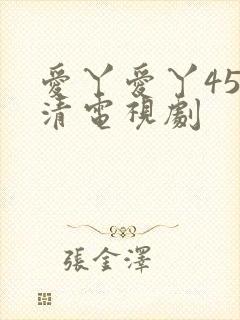 愛丫愛丫45
清電視劇
張金澤